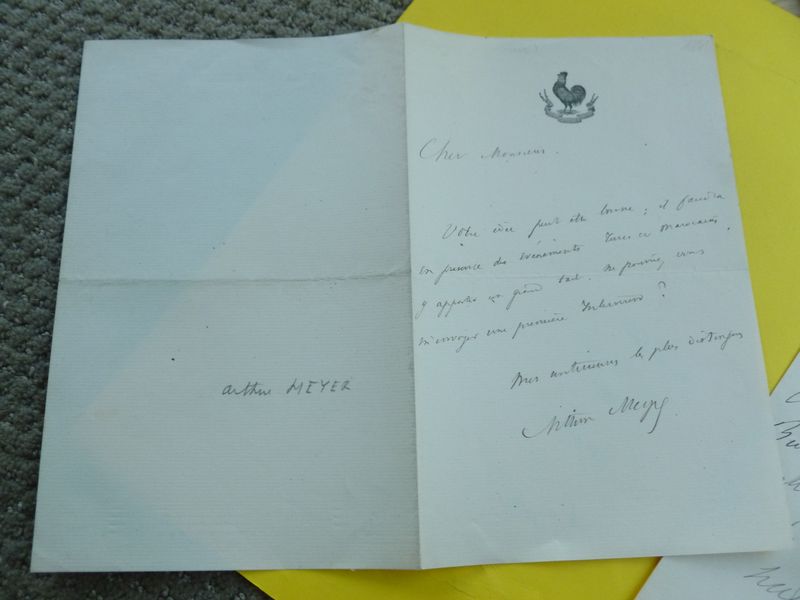 Arthur MEYER
Cher Monsieur.
Votre idée peut être bonne ; il faudra
en présence des événements Turcs et Marocains,
y apporter un grand tact. Ne pourriez vous
m'envoyer une première Interview ?
Mes sentiments les plus distingués
Arthur Meyer